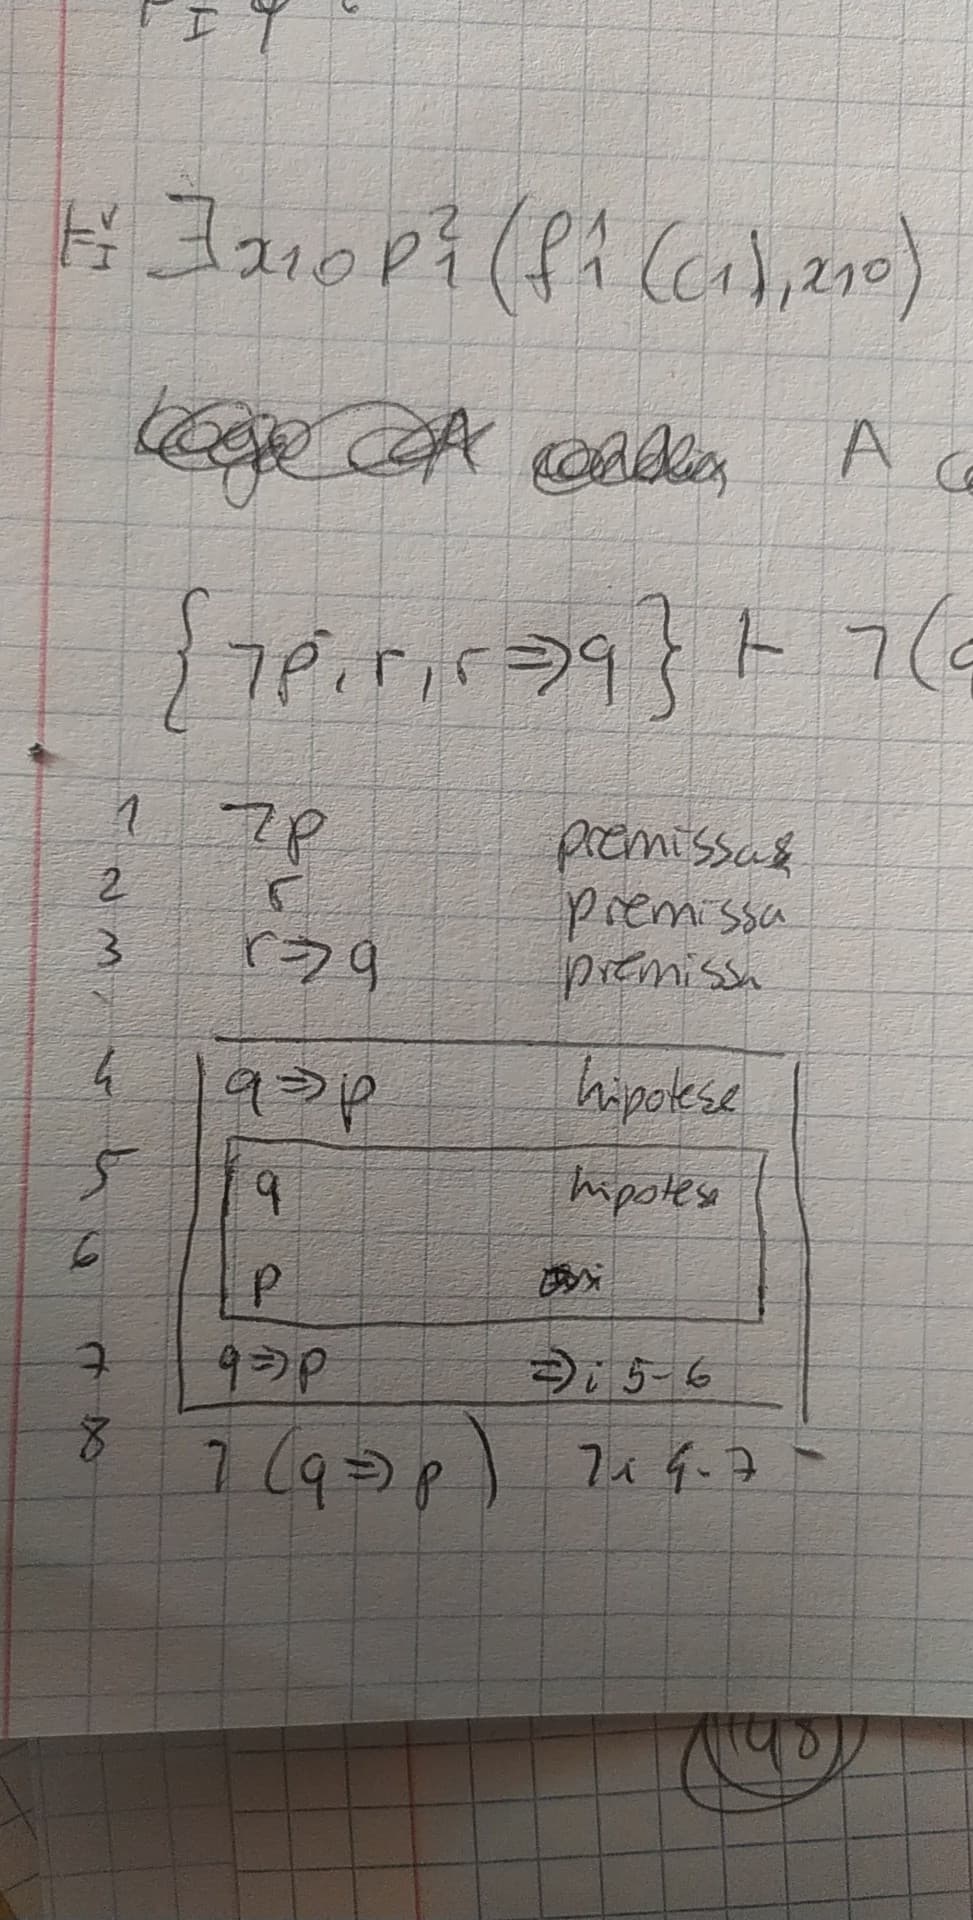 ⊢ᵛ_I ∃x10 P²₁(f¹₁(c1), x10)
A
{¬p, r, r⇒q} ⊢ ¬(q
1 ¬p premissa
2 r premissa
3 r⇒q premissa
4 q⇒p hipotese
5 q hipotese
6 p
7 q⇒p ⇒i 5-6
8 ¬(q⇒p) ¬i 4-7
148